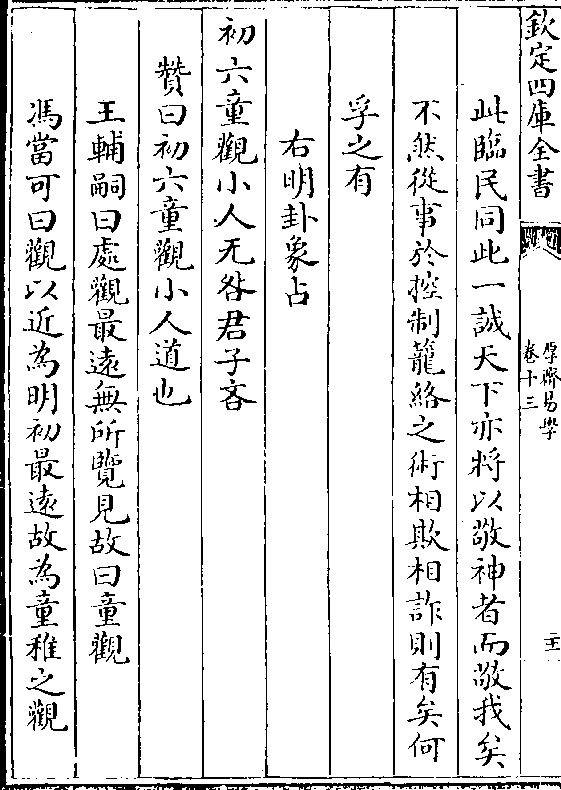 欽定四庫全書
厚齋易學
卷十三
此臨民同此一誠天下亦將以敬神者而敬我矣
不然從事於控制籠絡之術相欺相詐則有矣何
孚之有
右明卦象占
初六童觀小人无咎君子吝
贊曰初六童觀小人道也
王輔嗣曰處觀最遠無所覽見故曰童觀
馮當可曰觀以近為明初最遠故為童稚之觀